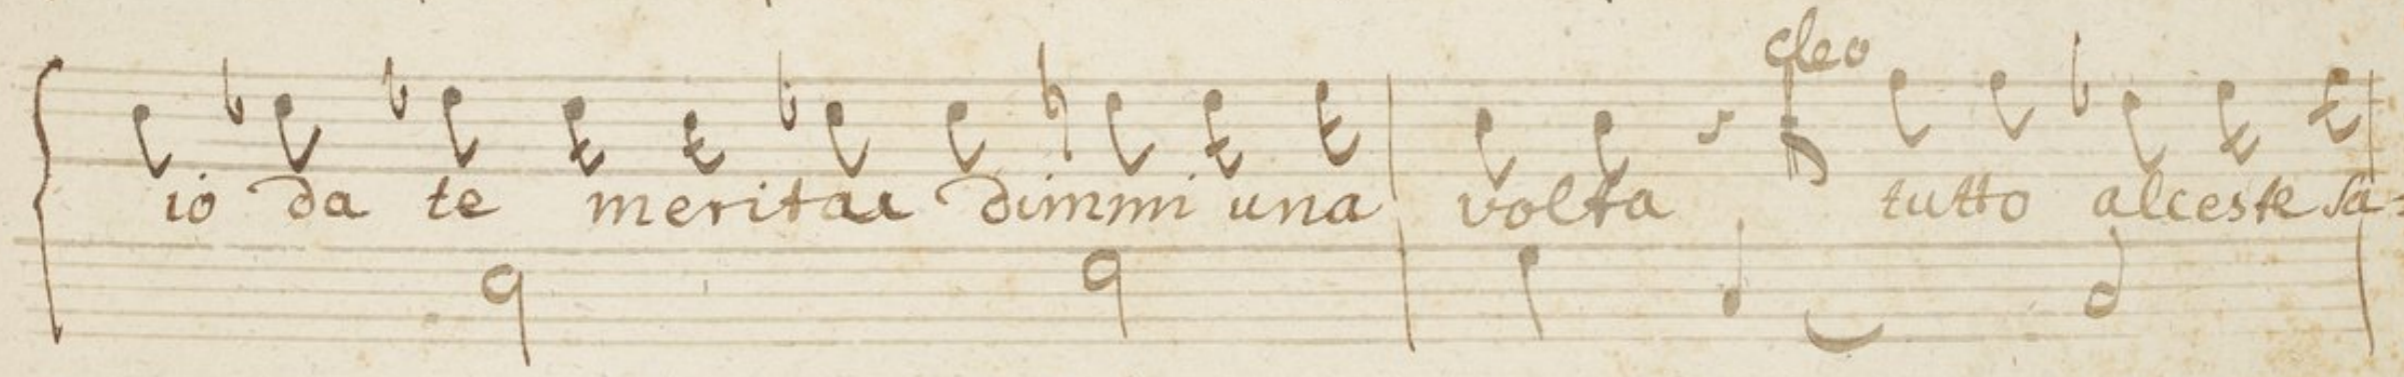 cleo
io da te meritai dimmi una volta tutto alceste sa=